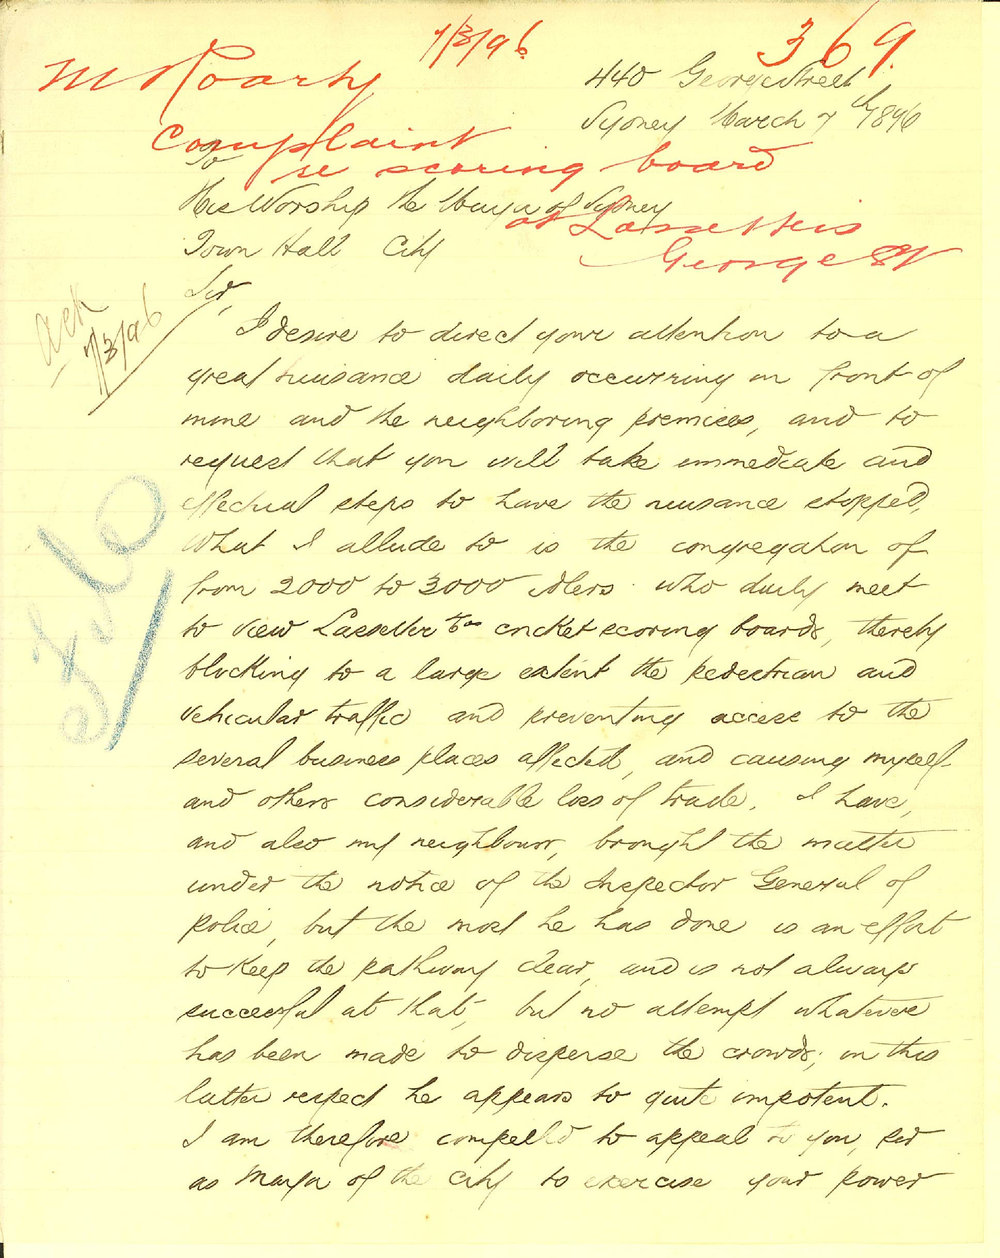 7/3/96
369.
M Roarty
Complaint
re scoring board
at Lassetters
George St
440 George Street
Sydney March 7th 1896
To
His Worship the Mayor of Sydney
Town Hall City
Sir,
Ack
7/3/96
File
I desire to direct your attention to a
great nuisance daily occurring in front of
mine and the neighboring premises, and to
request that you will take immediate and
effectual steps to have the nuisance stopped.
What I allude to is the congregation of
from 2000 to 3000 idlers who daily meet
to view Lassetter & Cos cricket scoring boards, thereby
blocking to a large extent the pedestrian and
vehicular traffic and preventing access to the
several business places affected, and causing myself
and others considerable loss of trade. I have,
and also my neighbour, brought the matter
under the notice of the Inspector General of
Police, but the most he has done is an effort
to keep the pathway clear, and is not always
successful at that, but no attempt whatever
has been made to disperse the crowds; in this
latter respect he appears to quite impotent.
I am therefore compelled to appeal to you, Sir
as Mayor of the City to exercise your power